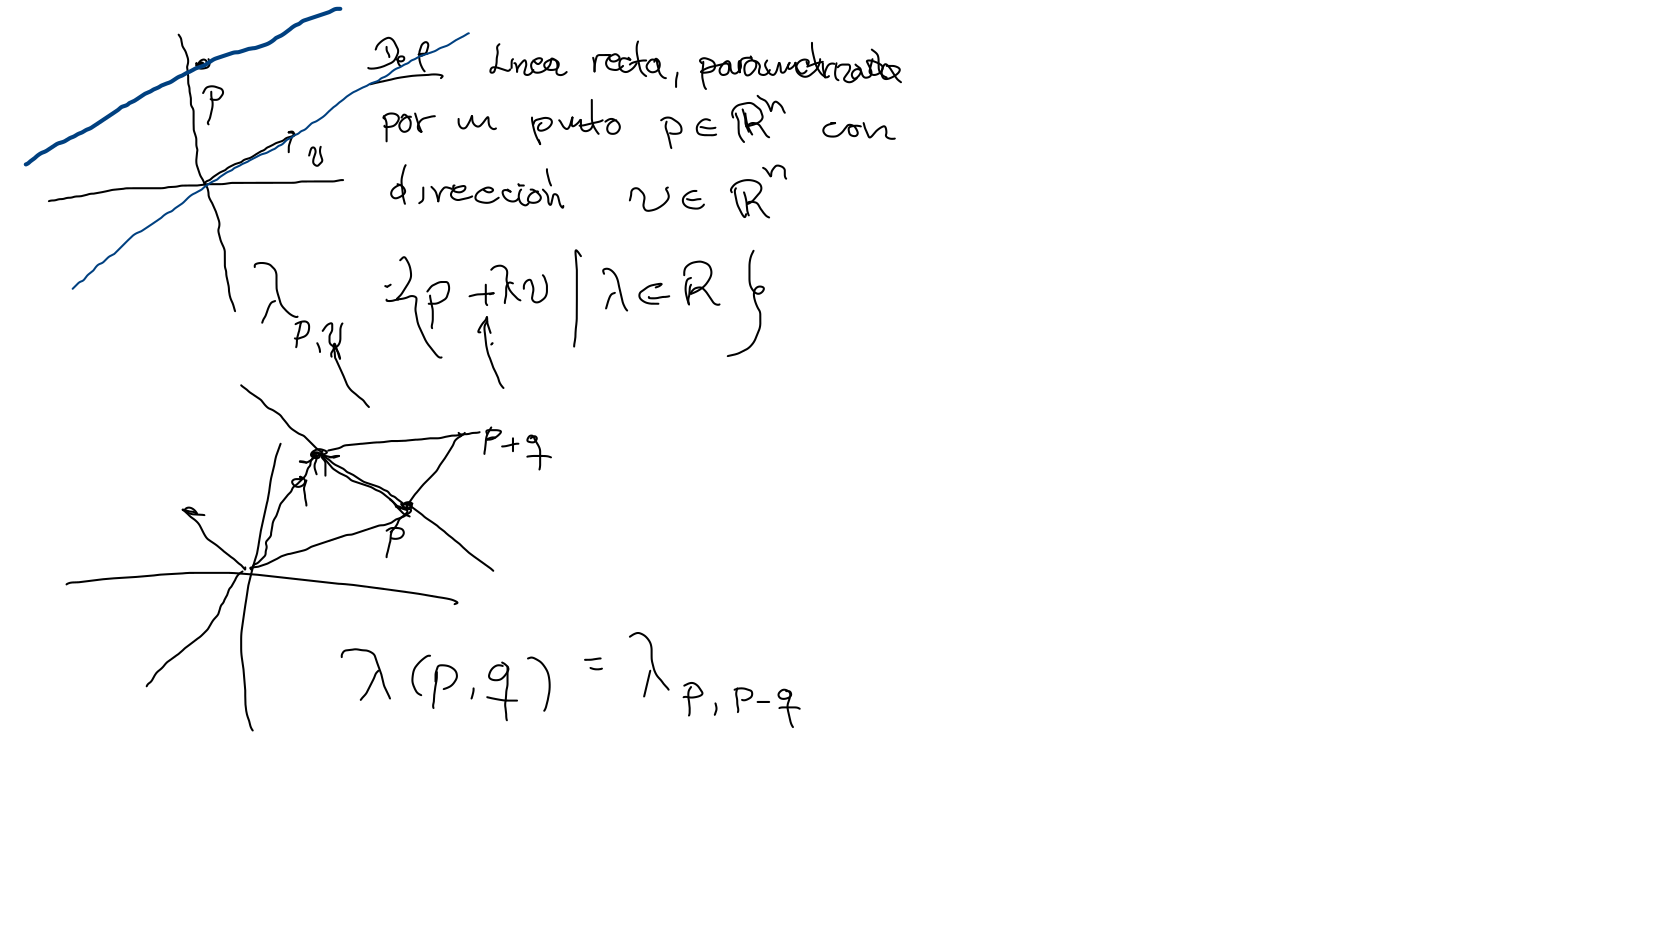 Def Linea recta, parametrizada
por un punto p ∈ ℝⁿ con
dirección v ∈ ℝⁿ
p
v
λ_{p,v} = {p + λv | λ ∈ ℝ}
p+q
q
p
λ(p,q) = λ_{p, p-q}